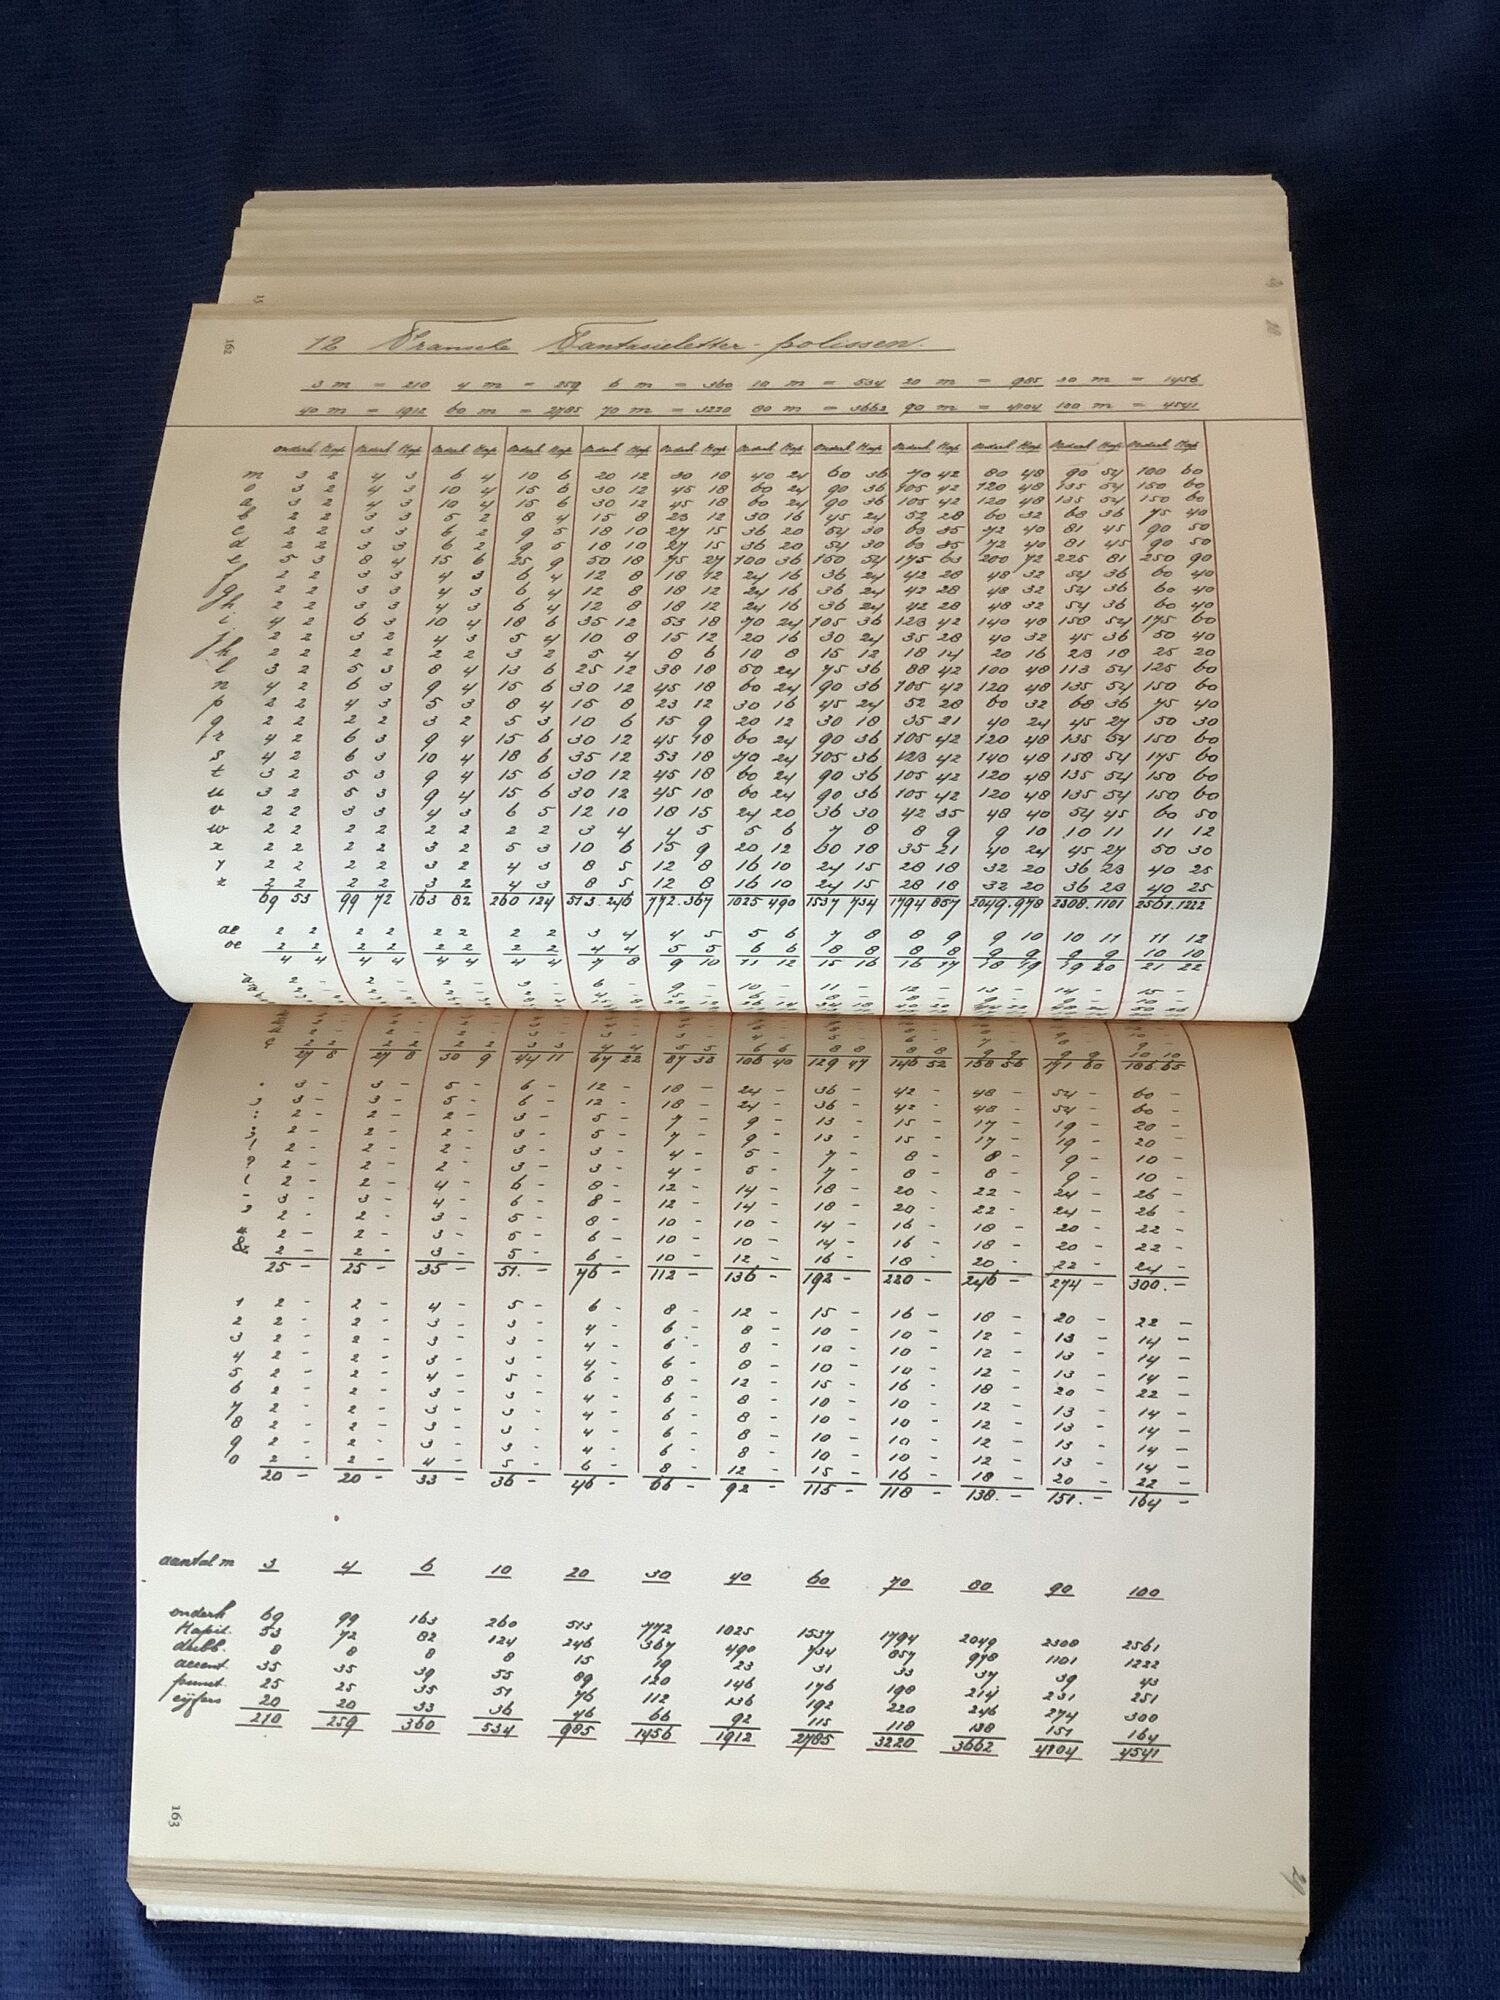 162
12 Fransche Fantasieletter-polissen.
3 m = 210 4 m = 259 6 m = 360 10 m = 534 20 m = 985 30 m = 1456
40 m = 1912 60 m = 2785 70 m = 3220 80 m = 3662 90 m = 4104 100 m = 4541
onderk Kap onderk Kap onderk Kap onderk Kap onderk Kap onderk Kap onderk Kap onderk Kap onderk Kap onderk Kap onderk Kap onderk Kap
m 3 2 4 3 6 4 10 6 20 12 30 18 40 24 60 36 70 42 80 48 90 54 100 60
o 3 2 4 3 10 4 15 6 30 12 45 18 60 24 90 36 105 42 120 48 135 54 150 60
a 3 2 4 3 10 4 15 6 30 12 45 18 60 24 90 36 105 42 120 48 135 54 150 60
b 2 2 3 3 5 2 8 4 15 8 23 12 30 16 45 24 52 28 60 32 68 36 75 40
c 2 2 3 3 6 2 9 5 18 10 27 15 36 20 54 30 60 35 72 40 81 45 90 50
d 2 2 3 3 6 2 9 5 18 10 27 15 36 20 54 30 60 35 72 40 81 45 90 50
e 5 3 8 4 15 6 25 9 50 18 75 27 100 36 150 54 175 63 200 72 225 81 250 90
f 2 2 3 3 4 3 6 4 12 8 18 12 24 16 36 24 42 28 48 32 54 36 60 40
g 2 2 3 3 4 3 6 4 12 8 18 12 24 16 36 24 42 28 48 32 54 36 60 40
h 2 2 3 3 4 3 6 4 12 8 18 12 24 16 36 24 42 28 48 32 54 36 60 40
i 4 2 6 3 10 4 18 6 35 12 53 18 70 24 105 36 123 42 140 48 158 54 175 60
j 2 2 3 2 4 3 5 4 10 8 15 12 20 16 30 24 35 28 40 32 45 36 50 40
k 2 2 2 2 2 2 3 2 5 4 8 6 10 8 15 12 18 14 20 16 23 18 25 20
l 3 2 5 3 8 4 13 6 25 12 38 18 50 24 75 36 88 42 100 48 113 54 125 60
n 4 2 6 3 9 4 15 6 30 12 45 18 60 24 90 36 105 42 120 48 135 54 150 60
p 2 2 4 3 5 3 8 4 15 8 23 12 30 16 45 24 52 28 60 32 68 36 75 40
q 2 2 2 2 3 2 5 3 10 6 15 9 20 12 30 18 35 21 40 24 45 27 50 30
r 4 2 6 3 9 4 15 6 30 12 45 18 60 24 90 36 105 42 120 48 135 54 150 60
s 4 2 6 3 10 4 18 6 35 12 53 18 70 24 105 36 123 42 140 48 158 54 175 60
t 3 2 5 3 9 4 15 6 30 12 45 18 60 24 90 36 105 42 120 48 135 54 150 60
u 3 2 5 3 9 4 15 6 30 12 45 18 60 24 90 36 105 42 120 48 135 54 150 60
v 2 2 3 3 4 3 6 5 12 10 18 15 24 20 36 30 42 35 48 40 54 45 60 50
w 2 2 2 2 2 2 2 2 3 4 4 5 5 6 7 8 8 9 9 10 10 11 11 12
x 2 2 2 2 3 2 5 3 10 6 15 9 20 12 60 18 35 21 40 24 45 27 50 30
y 2 2 2 2 3 2 4 3 8 5 12 8 16 10 24 15 28 18 32 20 36 23 40 25
z 2 2 2 2 3 2 4 3 8 5 12 8 16 10 24 15 28 18 32 20 36 23 40 25
69 53 99 72 163 82 260 124 513. 246 772. 367 1025 490 1537 734 1794 857 2049. 978 2308. 1101 2561. 1222
ae 2 2 2 2 2 2 2 2 3 4 4 5 5 6 7 8 8 9 9 10 10 11 11 12
oe 2 2 2 2 2 2 2 2 4 4 5 5 6 6 8 8 8 8 9 9 9 9 10 10
4 4 4 4 4 4 4 4 7 8 9 10 11 12 15 16 16 17 18 19 19 20 21 22
2 - 2 - 2 - 3 - 6 - 9 - 10 - 11 - 12 - 13 - 14 - 15 -
2 2 2 2 2 2 3 3 4 4 5 5 6 6 8 8 8 8 9 9 9 9 10 10
27 8 27 8 30 9 44 11 67 22 87 33 106 40 129 47 146 52 158 56 171 60 186 65
. 3 - 3 - 5 - 6 - 12 - 18 - 24 - 36 - 42 - 48 - 54 - 60 -
, 3 - 3 - 5 - 6 - 12 - 18 - 24 - 36 - 42 - 48 - 54 - 60 -
: 2 - 2 - 2 - 3 - 5 - 7 - 9 - 13 - 15 - 17 - 19 - 20 -
; 2 - 2 - 2 - 3 - 5 - 7 - 9 - 13 - 15 - 17 - 19 - 20 -
! 2 - 2 - 2 - 3 - 3 - 4 - 5 - 7 - 8 - 8 - 9 - 10 -
? 2 - 2 - 2 - 3 - 3 - 4 - 5 - 7 - 8 - 8 - 9 - 10 -
( 2 - 2 - 4 - 6 - 8 - 12 - 14 - 18 - 20 - 22 - 24 - 26 -
- 3 - 3 - 4 - 6 - 8 - 12 - 14 - 18 - 20 - 22 - 24 - 26 -
2 - 2 - 3 - 5 - 8 - 10 - 10 - 14 - 16 - 18 - 20 - 22 -
2 - 2 - 3 - 5 - 6 - 10 - 10 - 14 - 16 - 18 - 20 - 22 -
& 2 - 2 - 3 - 5 - 6 - 10 - 12 - 16 - 18 - 20 - 22 - 24 -
25 - 25 - 35 - 51. - 76 - 112 - 136 - 192 - 220 - 246 - 274 - 300. -
1 2 - 2 - 4 - 5 - 6 - 8 - 12 - 15 - 16 - 18 - 20 - 22 -
2 2 - 2 - 3 - 3 - 4 - 6 - 8 - 10 - 10 - 12 - 13 - 14 -
3 2 - 2 - 3 - 3 - 4 - 6 - 8 - 10 - 10 - 12 - 13 - 14 -
4 2 - 2 - 3 - 3 - 4 - 6 - 8 - 10 - 10 - 12 - 13 - 14 -
5 2 - 2 - 4 - 5 - 6 - 8 - 12 - 15 - 16 - 18 - 20 - 22 -
6 2 - 2 - 3 - 3 - 4 - 6 - 8 - 10 - 10 - 12 - 13 - 14 -
7 2 - 2 - 3 - 3 - 4 - 6 - 8 - 10 - 10 - 12 - 13 - 14 -
8 2 - 2 - 3 - 3 - 4 - 6 - 8 - 10 - 10 - 12 - 13 - 14 -
9 2 - 2 - 3 - 3 - 4 - 6 - 8 - 10 - 10 - 12 - 13 - 14 -
0 2 - 2 - 4 - 5 - 6 - 8 - 12 - 15 - 16 - 18 - 20 - 22 -
20 - 20 - 33 - 36 - 46 - 66 - 92 - 115 - 118 - 138. - 151. - 164 -
aantal m 3 4 6 10 20 30 40 60 70 80 90 100
onderk 69 99 163 260 513 772 1025 1537 1794 2049 2308 2561
Kapit. 53 72 82 124 246 367 490 734 857 978 1101 1222
dubb. 8 8 8 8 15 19 23 31 33 37 39 43
accent. 35 35 39 55 89 120 146 176 198 214 231 251
punct. 25 25 35 51 76 112 136 192 220 246 274 300
cijfers 20 20 33 36 46 66 92 115 118 138 151 164
210 259 360 534 985 1456 1912 2785 3220 3662 4104 4541
163